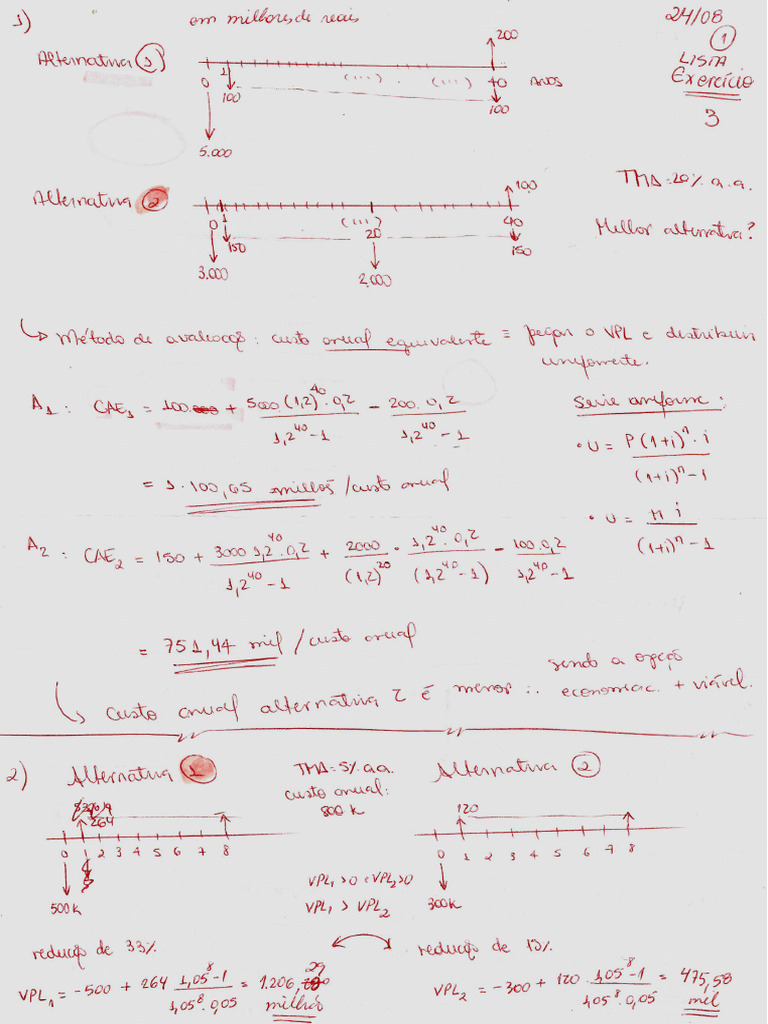 1)
em milhões de reais
24/08
1
LISTA
Exercício
3
Alternativa 1
200
0 1 (...) . (...) 40 ANOS
100 100
5.000
Alternativa 2
100
TMA = 20% a.a.
0 1 (...) 20 40
150 150
3.000 2.000
Melhor alternativa?
↳ Método de avaliação: custo anual equivalente = pegar o VPL e distribuir
uniformente.
A1: CAE1 = 100 + 5000 (1,2)^40 . 0,2 / 1,2^40 - 1 - 200. 0,2 / 1,2^40 - 1
= 1.100,65 milhões /custo anual
Série uniforme:
• U = P (1+i)^n . i / (1+i)^n - 1
• U = M i / (1+i)^n - 1
A2: CAE2 = 150 + 3000 1,2^40 . 0,2 / 1,2^40 - 1 + 2000 / (1,2)^20 . 1,2^40 . 0,2 / (1,2^40 - 1) - 100. 0,2 / 1,2^40 - 1
= 751,44 mil /custo anual
↳ Custo anual alternativa 2 é menor ∴ sendo a opção
economic. + viável.
2) Alternativa 1
TMA = 5% a.a.
custo anual:
800 k
264
0 1 2 3 4 5 6 7 8
500k
VPL1 > 0 e VPL2 > 0
VPL1 > VPL2
redução de 33%
VPL1 = -500 + 264 1,05^8 - 1 / 1,05^8 . 0,05 = 1.206,29
milhões
Alternativa 2
120
0 1 2 3 4 5 6 7 8
300k
redução de 15%
VPL2 = -300 + 120 . 1,05^8 - 1 / 1,05^8 . 0,05 = 475,58
mil